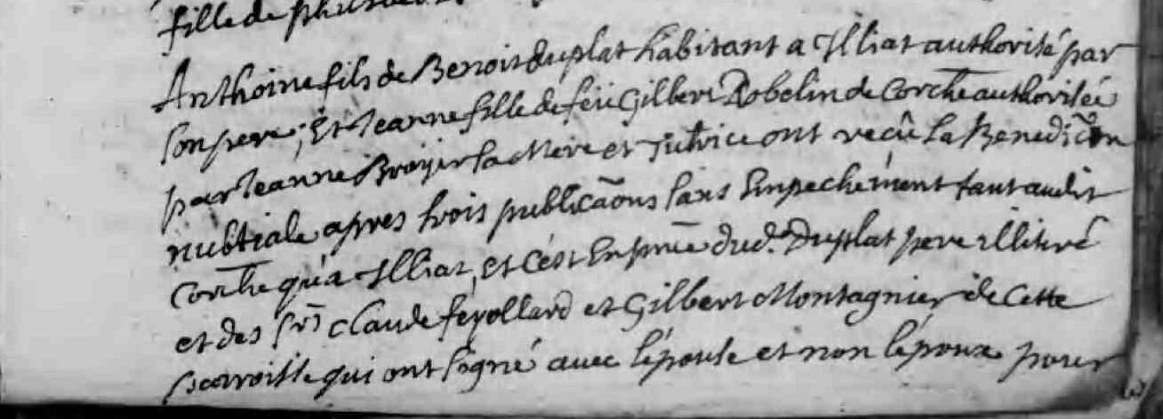 fille de
Anthoine fils de Benoit duplat habitant a Illiat authorisé par
son pere; Et Jeanne fille de feu Gilbert Robelin de Corche authorisée
par Jeanne Broyer sa Mere et Tutrice ont recû la Benedicõn
nubtiale apres trois publicãons sans Empechement tant audit
Corche qu'a Illiat, et c'est En pñce dud. Duplat pere illitiré
et des srs Claude feyollard et Gilbert Montagnier de Cette
parroisse qui ont signé avec l'épouse et non l'époux pour